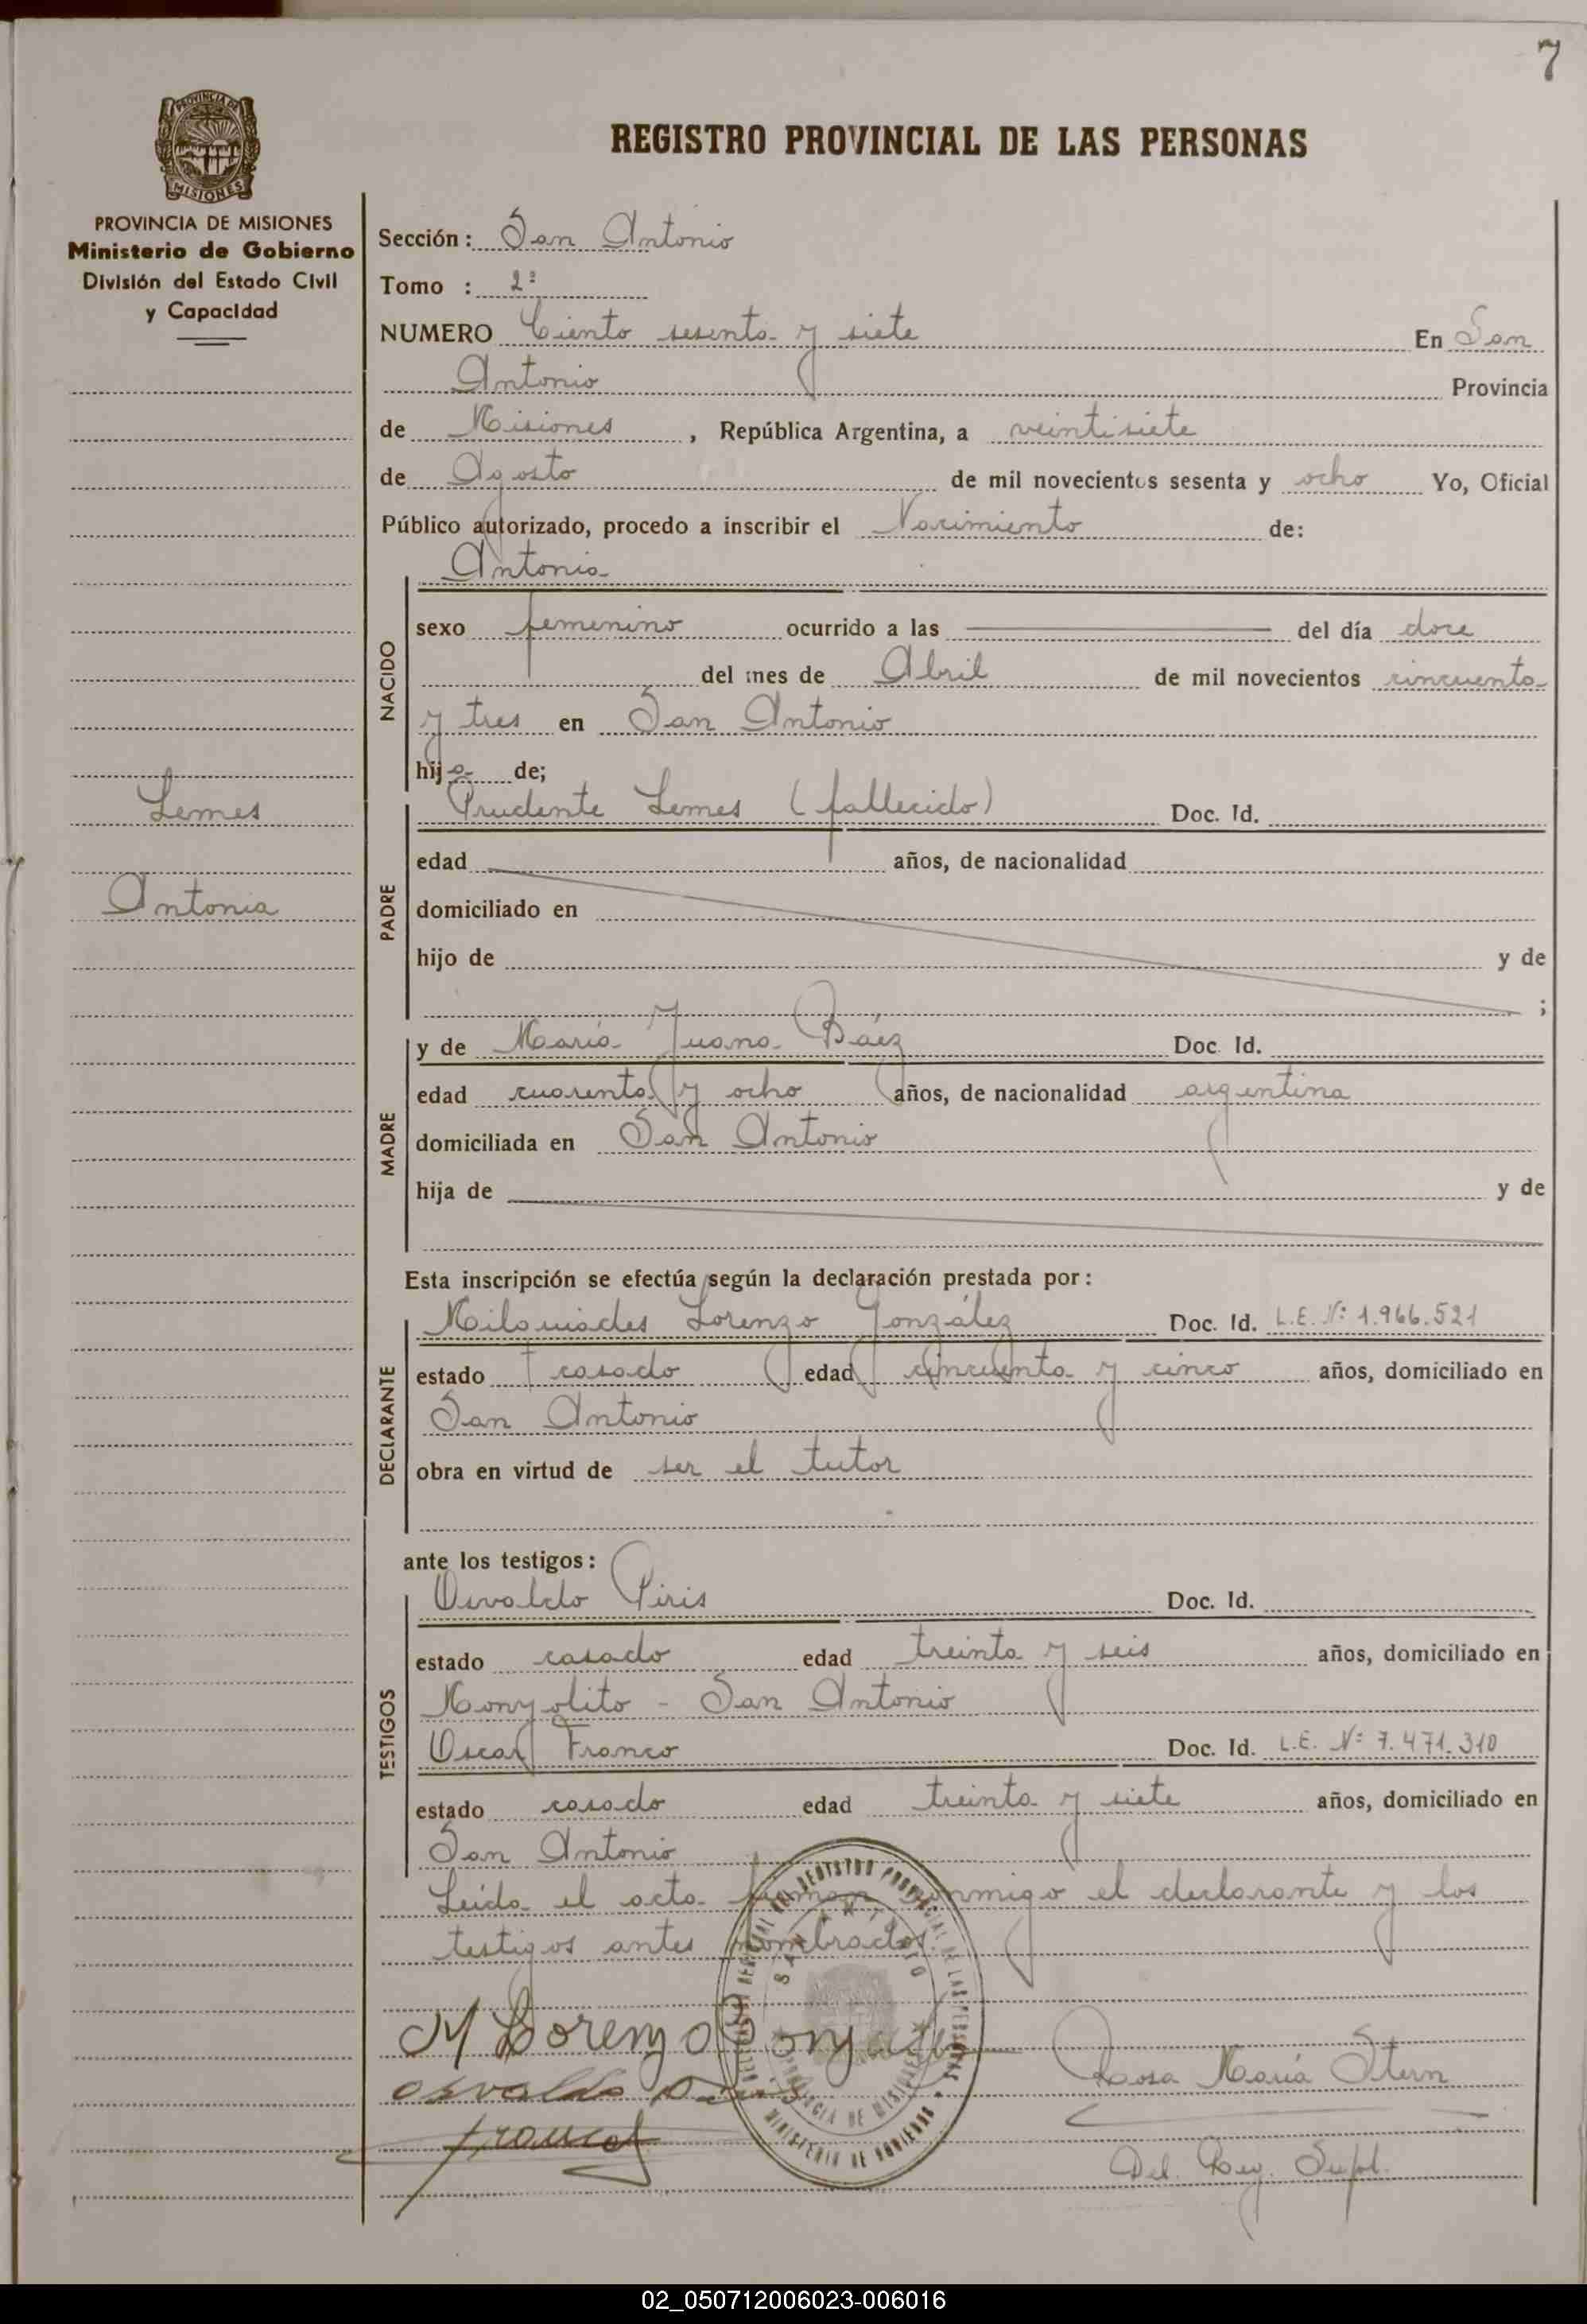 7
PROVINCIA DE
MISIONES
PROVINCIA DE MISIONES
Ministerio de Gobierno
División del Estado Civil
y Capacidad
REGISTRO PROVINCIAL DE LAS PERSONAS
Sección: San Antonio
Tomo : 2º
NUMERO Ciento sesenta y siete En San
Antonio Provincia
de Misiones, República Argentina, a veintisiete
de Agosto de mil novecientos sesenta y ocho Yo, Oficial
Público autorizado, procedo a inscribir el Nacimiento de:
NACIDO
Antonia
sexo femenino ocurrido a las del día doce
del mes de Abril de mil novecientos cincuenta
y tres en San Antonio
hija de;
Lemes
Antonia
PADRE
Prudente Lemes (fallecido) Doc. Id.
edad años, de nacionalidad
domiciliado en
hijo de y de
;
MADRE
y de María Juana Báez Doc. Id.
edad cuarenta y ocho años, de nacionalidad argentina
domiciliada en San Antonio
hija de y de
Esta inscripción se efectúa según la declaración prestada por:
DECLARANTE
Lorenzo González Doc. Id. L.E. Nº 1.966.521
estado casado edad cincuenta y cinco años, domiciliado en
San Antonio
obra en virtud de ser el tutor
ante los testigos:
TESTIGOS
Osvaldo Piris Doc. Id.
estado casado edad treinta y seis años, domiciliado en
Monyolito - San Antonio
Oscar Franco Doc. Id. L.E. Nº 7.471.310
estado casado edad treinta y siete años, domiciliado en
San Antonio
Leída el acta firman conmigo el declarante y los
testigos antes nombrados.
SAN ANTONIO
PROVINCIA DE MISIONES
MINISTERIO DE GOBIERNO
M Lorenzo Gonzalez
Osvaldo Piris
Franco
Rosa María Stern
Del. Reg. Supl.
02_050712006023-006016